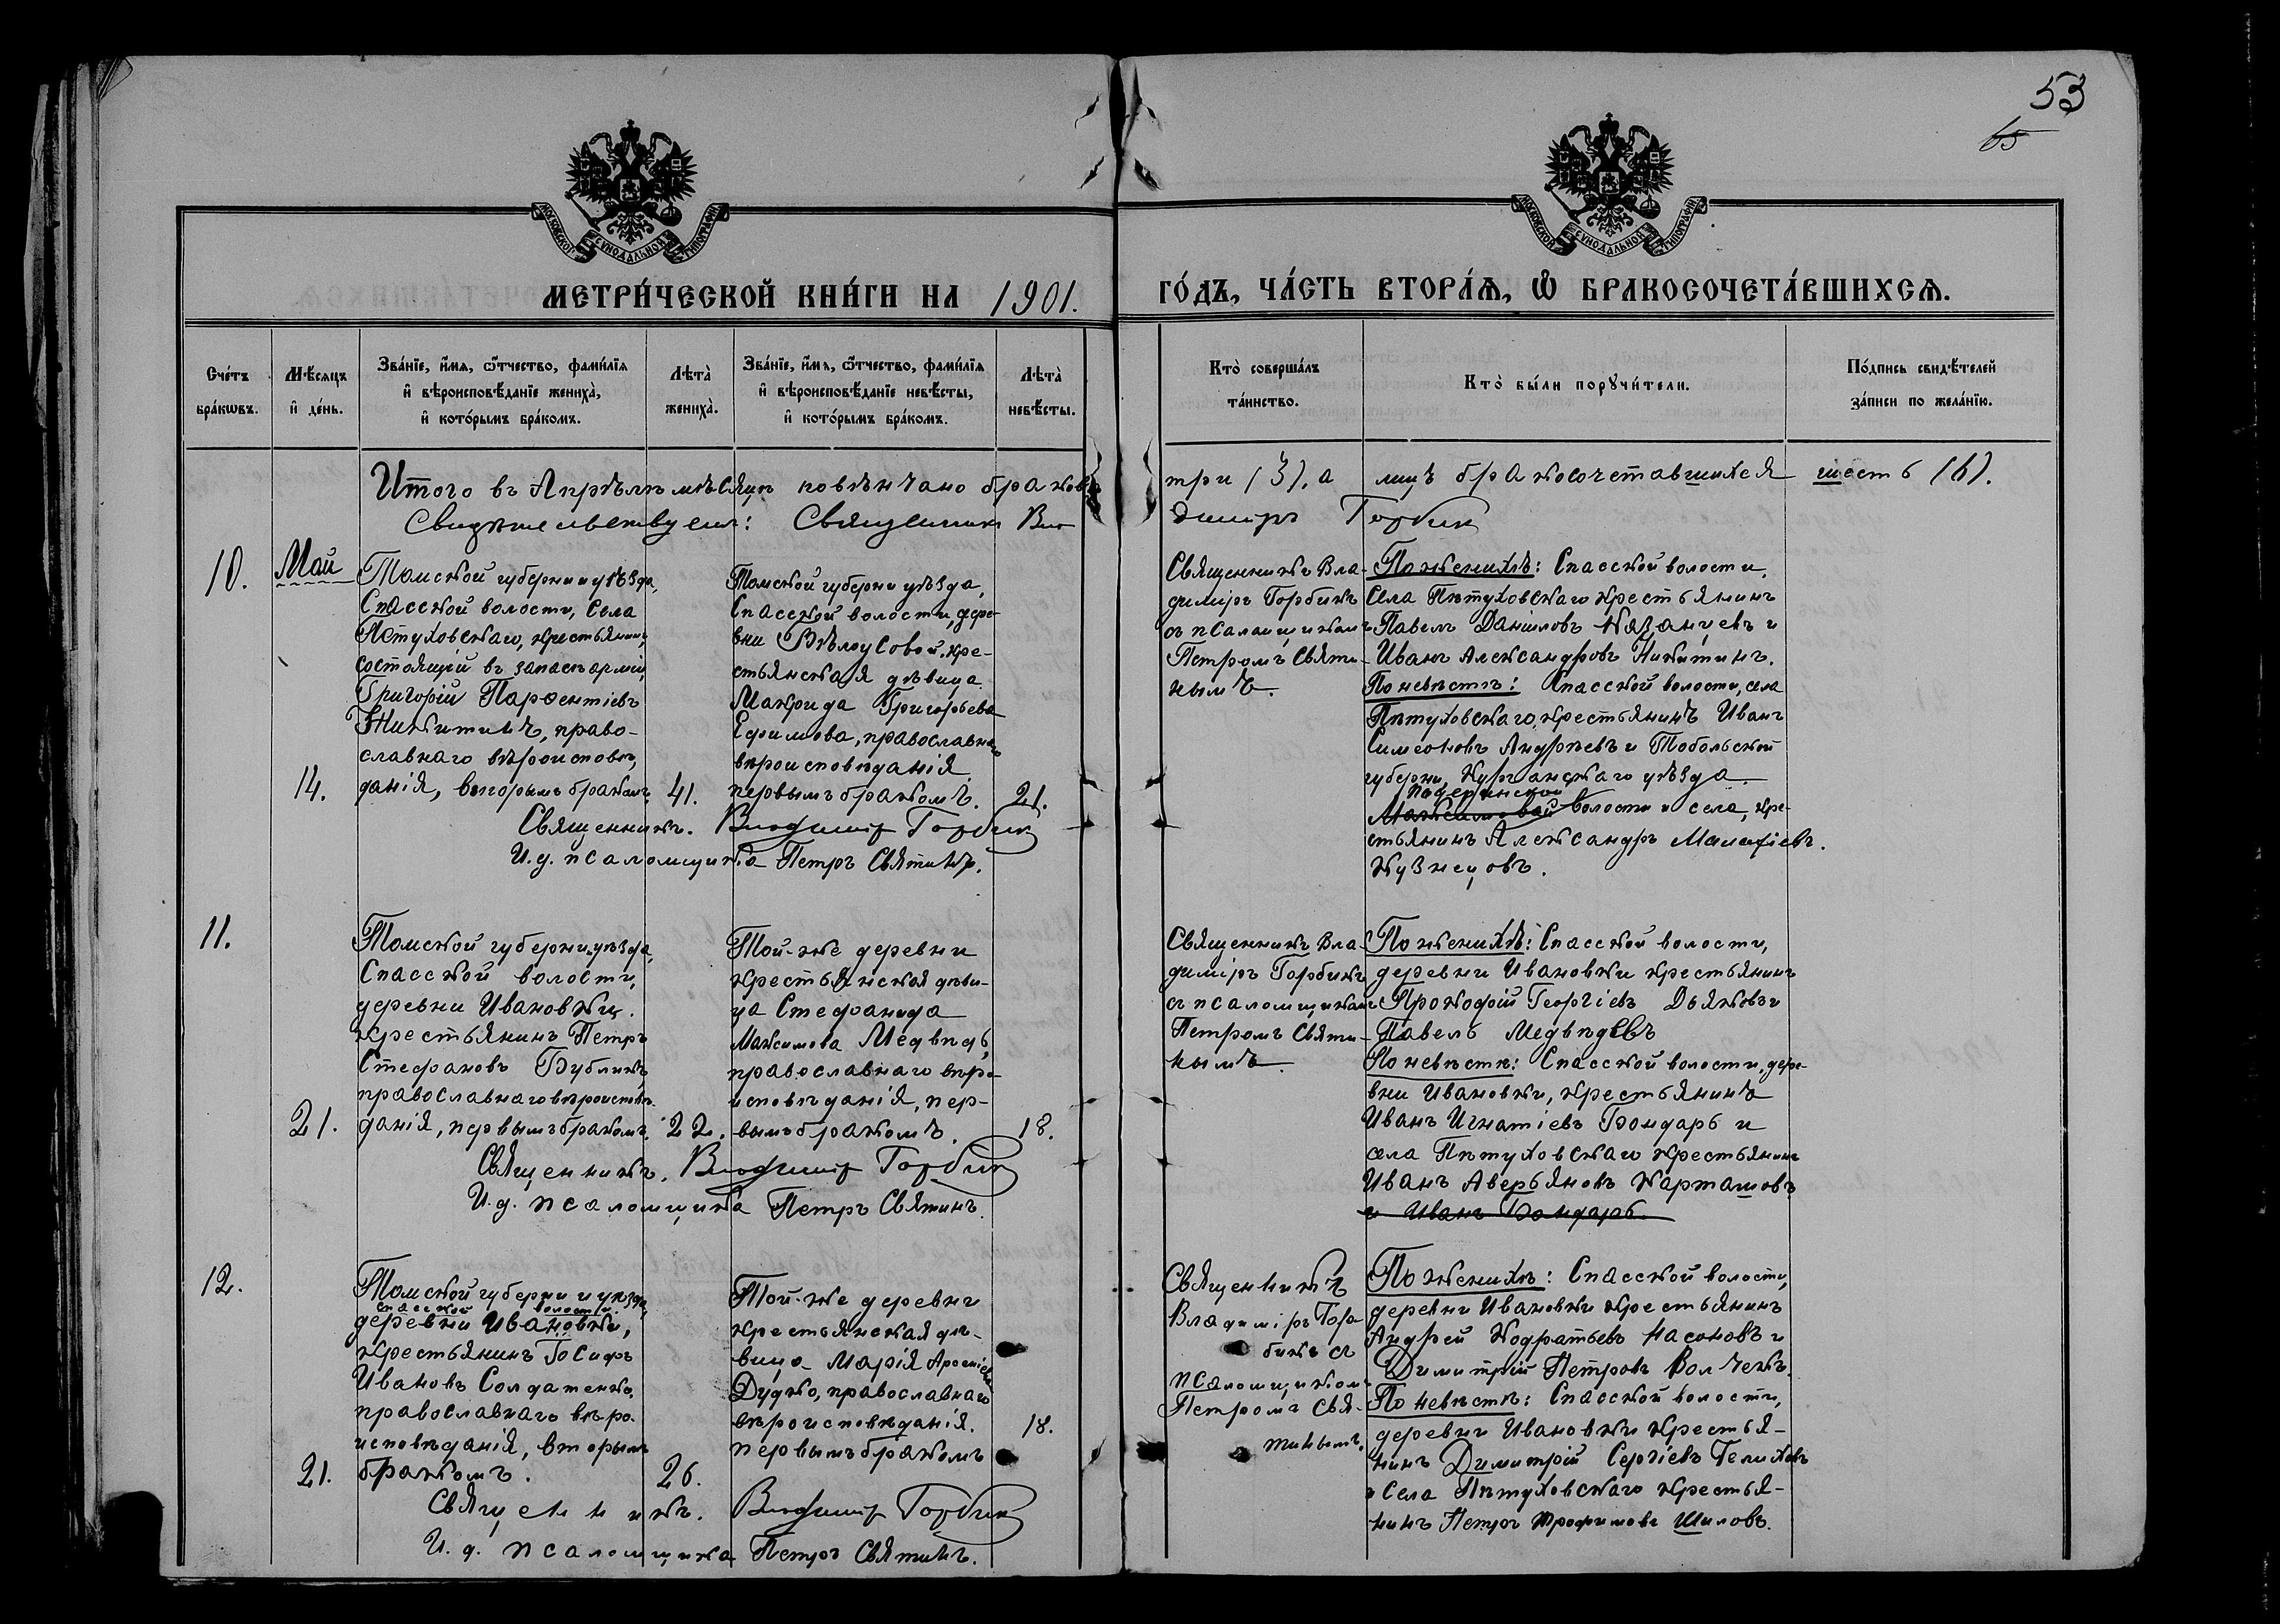 53
65
МОСКОВСКОЙ СѴНОДАЛЬНОЙ ТИПОГРАФІИ
МОСКОВСКОЙ СѴНОДАЛЬНОЙ ТИПОГРАФІИ
МЕТРИ́ЧЕСКОЙ КНИ́ГИ НА 1901.
ГО́ДЪ, ЧА́СТЬ ВТОРА́Ѧ, Ѽ БРАКОСОЧЕТА́ВШИХСѦ.
Сче́тъ
бра́кѡвъ.
Мѣ́сяцъ
и҆ де́нь.
Зва́нїе, и҆́мѧ, ѻ҆́тчество, фами́лїѧ
и҆ вѣроисповѣ́данїе жениха̀,
и҆ кото́рымъ бра́комъ.
Лѣта̀
жениха̀.
Зва́нїе, и҆́мѧ, ѻ҆́тчество, фами́лїѧ
и҆ вѣроисповѣ́данїе невѣ́сты,
и҆ кото́рымъ бра́комъ.
Лѣта̀
невѣ́сты.
Кто̀ соверша́лъ
та́инство.
Кто̀ бы́ли порꙋчи́тели.
По́дпись свидѣ́телей
за́писи по жела́нїю.
Итого въ Апрѣлѣ мѣсяцѣ повѣнчано браковъ
три (3), а лицъ бракосочетавшихся шесть (6).
Свидѣтельствуетъ: Священникъ Вла
диміръ Горбикъ
10.
Май
14.
Томской губерніи уѣзда,
Спасской волости, села
Петуховскаго, крестьянинъ,
состоящій въ запасѣ арміи,
Григорій Парѳентіевъ
Никитинъ, право-
славнаго вѣроисповѣ
данія, вторымъ бракомъ.
41.
Томской губерни уѣзда,
Спасской волости, дере-
вни Бѣлоусовой, кре-
стьянская дѣвица
Макрида Григорьева
Ефимова, православнаго
вѣроисповѣданія
первымъ бракомъ.
21.
Священникъ. Владиміръ Горбикъ
И. д. псаломщика Петръ Святинъ.
Священникъ Вла-
диміръ Горбикъ
съ псаломщикомъ
Петромъ Святи-
нымъ.
По женихѣ: Спасской волости,
села Пѣтуховскаго крестьянинъ
Павелъ Даниловъ Казанцевъ и
Иванъ Александровъ Никитинъ.
По невѣстѣ: Спасской волости, села
Пѣтуховскаго, крестьянинъ Иванъ
Симеоновъ Андреевъ и Тобольской
губерни, Курганскаго уѣзда.
Падеринской
волости и села, кре-
стьянинъ Александръ Малафіевъ.
Кузнецовъ.
11.
21.
Томской губерни уѣзда,
Спасской волости,
деревни Ивановки.
крестьянинъ Петръ
Стефановъ Бубликъ,
православнаго вѣроисповѣ-
данія, первымъ бракомъ.
22.
Той-же деревни
крестьянская дѣви-
ца Стефанида
Максимова Медвѣдь,
православнаго вѣро-
исповѣданія, пер-
вымъ бракомъ.
18.
Священникъ. Владиміръ Горбикъ
И. д. псаломщика Петръ Святинъ.
Священникъ Вла-
диміръ Горбикъ
съ псаломщикомъ
Петромъ Святи-
нымъ.
По женихѣ: Спасской волости,
деревни Ивановки крестьянинъ
Прокофій Георгіевъ Дьяковъ и
Павелъ Медвѣдевъ
По невѣстѣ: Спасской волости, дере-
вни Ивановки, крестьянинъ
Иванъ Игнатіевъ Бондарь и
села Пѣтуховскаго крестьянинъ
Иванъ Аверьяновъ Карташовъ
и Иванъ Бондарь.
12.
21.
Томской губерни и уѣзда,
спасской волости.
деревни Ивановки,
крестьянинъ Іосифъ
Ивановъ Солдатенко,
православнаго вѣро-
исповѣданія, вторымъ
бракомъ.
26.
Той-же деревни
крестьянская дѣ-
вица Марія
Дудко, православнаго
вѣроисповѣданія.
первымъ бракомъ
18.
Священникъ. Владиміръ Горбикъ
И. д. псаломщика Петръ Святинъ.
Священникъ
Владиміръ Гор-
бикъ съ
псаломщикомъ
Петромъ Свя-
тинымъ.
По женихѣ: Спасской волости,
деревни Ивановки крестьянинъ
Андрей Кодратьевъ Насоновъ и
Димитрій Петровъ Волчекъ.
По невѣстѣ: Спасской волости,
деревни Ивановки крестья-
нинъ Димитрій Сергіевъ
и села Пѣтуховскаго крестья-
нинъ Петръ Трофимовъ Шиловъ.